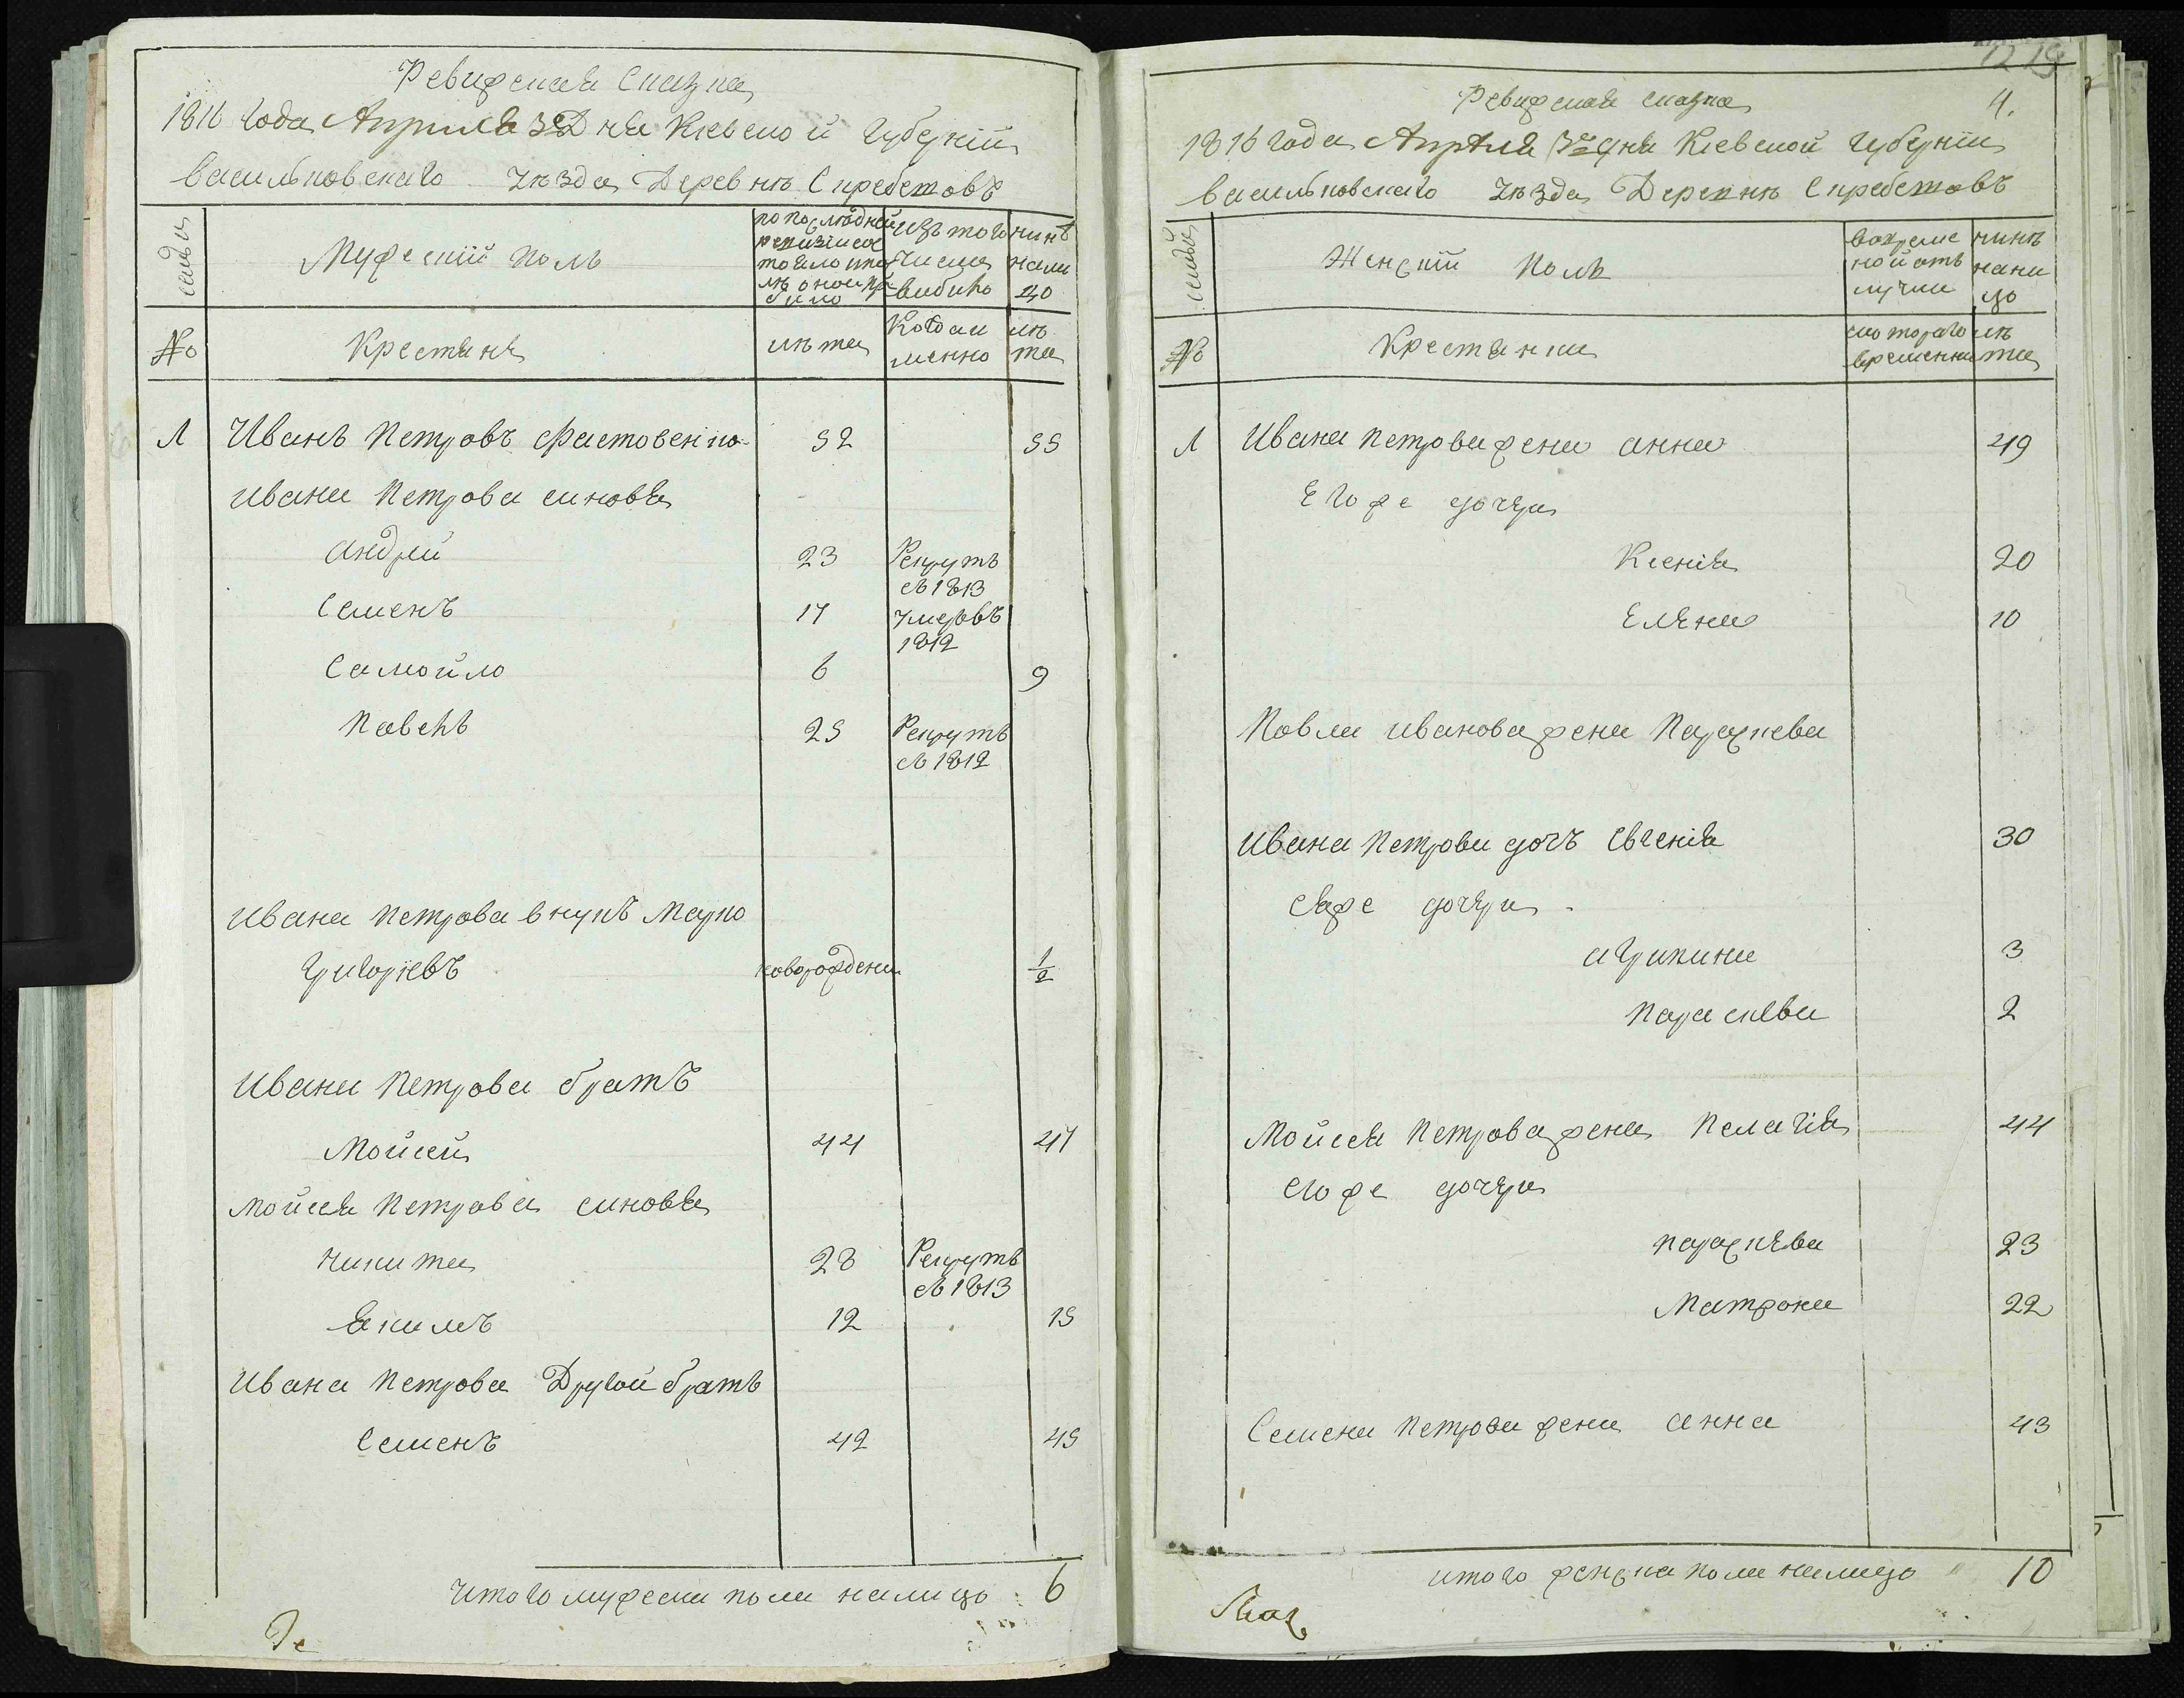 Ревижская Сказка
1816 года Апреля 3е Дня Киевской Губернiи
васильковскаго Уезда Деревни Скребетовъ
семьи
Мужескiй полъ
по последней
ревизiи сос
тояло и по
слѣ оной при
било
изъ того
числа
вибило
нинѣ
нали
цо
№
Крестяне
лѣта
Когда и
менно
лѣ
та
1 Иванъ Петровъ Фастовенко 52 55
Ивана Петрова синовья
Андрей 23 Рекрутъ
въ 1813
Семенъ 17 Умеръ въ
1812
Самойло 6 9
Павелъ 25 Рекрутъ
въ 1812
Ивана Петрова внукъ Марко
Григорiевъ новорожденъ 1/2
Ивана Петрова братъ
Мойсей 44 47
Мойсея Петрова синовья
Никита 28 Рекрутъ
въ 1813
Якимъ 12 15
Ивана Петрова Другой братъ
Семенъ 42 45
Итого мужеска пола налицо 6
12 19
4.
Ревижская сказка
1816 года Апреля 3го дня Киевской Губернiи
васильковскаго Уезда Деревни Скребетовъ
семьи
Женскiй Полъ
во време
ной отъ
лучки
нинѣ
нали
цо
№
Крестянки
съ котораго
времени
лѣ
та
1 Ивана Петрова жена анна 49
Егоже дочери
Ксенiя 20
Елена 10
Павла Иванова жена Параскева
Ивана Петрова дочъ Евгенiя 30
Еяже дочери
агрипина 3
Параскева 2
Мойсея Петрова жена Пелагiя 44
Егоже дочери
параскева 23
Матрона 22
Семена Петрова жена анна 43
итого женска пола налицо 10
Сказ